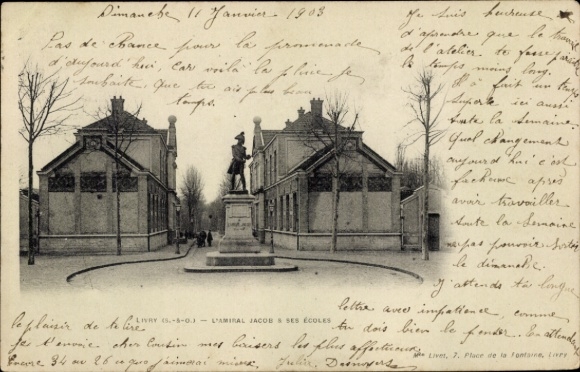 Dimanche 11 Janvier 1903
Pas de chance pour la promenade
d'aujourd'hui. Car voilà la pluie je
souhaite que tu ais plus beau
temps.
Je suis heureuse
d'apprendre que le travail
de l'atelier te fasse paraître
le temps moins long.
Il a fait un temps
superbe ici aussi
toute la semaine.
Quel changement
aujourd'hui c'est
facheuse après
avoir travailler
toute la semaine
ne pas pouvoir sortir
le dimanche.
J'attends ta longue
lettre avec impatience, comme
tu dois bien le penser. En attendant
le plaisir de te lire
Je t'envoie cher cousin mes baisers les plus affectueux
34 ou 26 ce que j'aimerai mieux. Julia
LIVRY (S.-&-O.) — L'AMIRAL JACOB & SES ÉCOLES
Mme Livet, 7, Place de la Fontaine, Livry